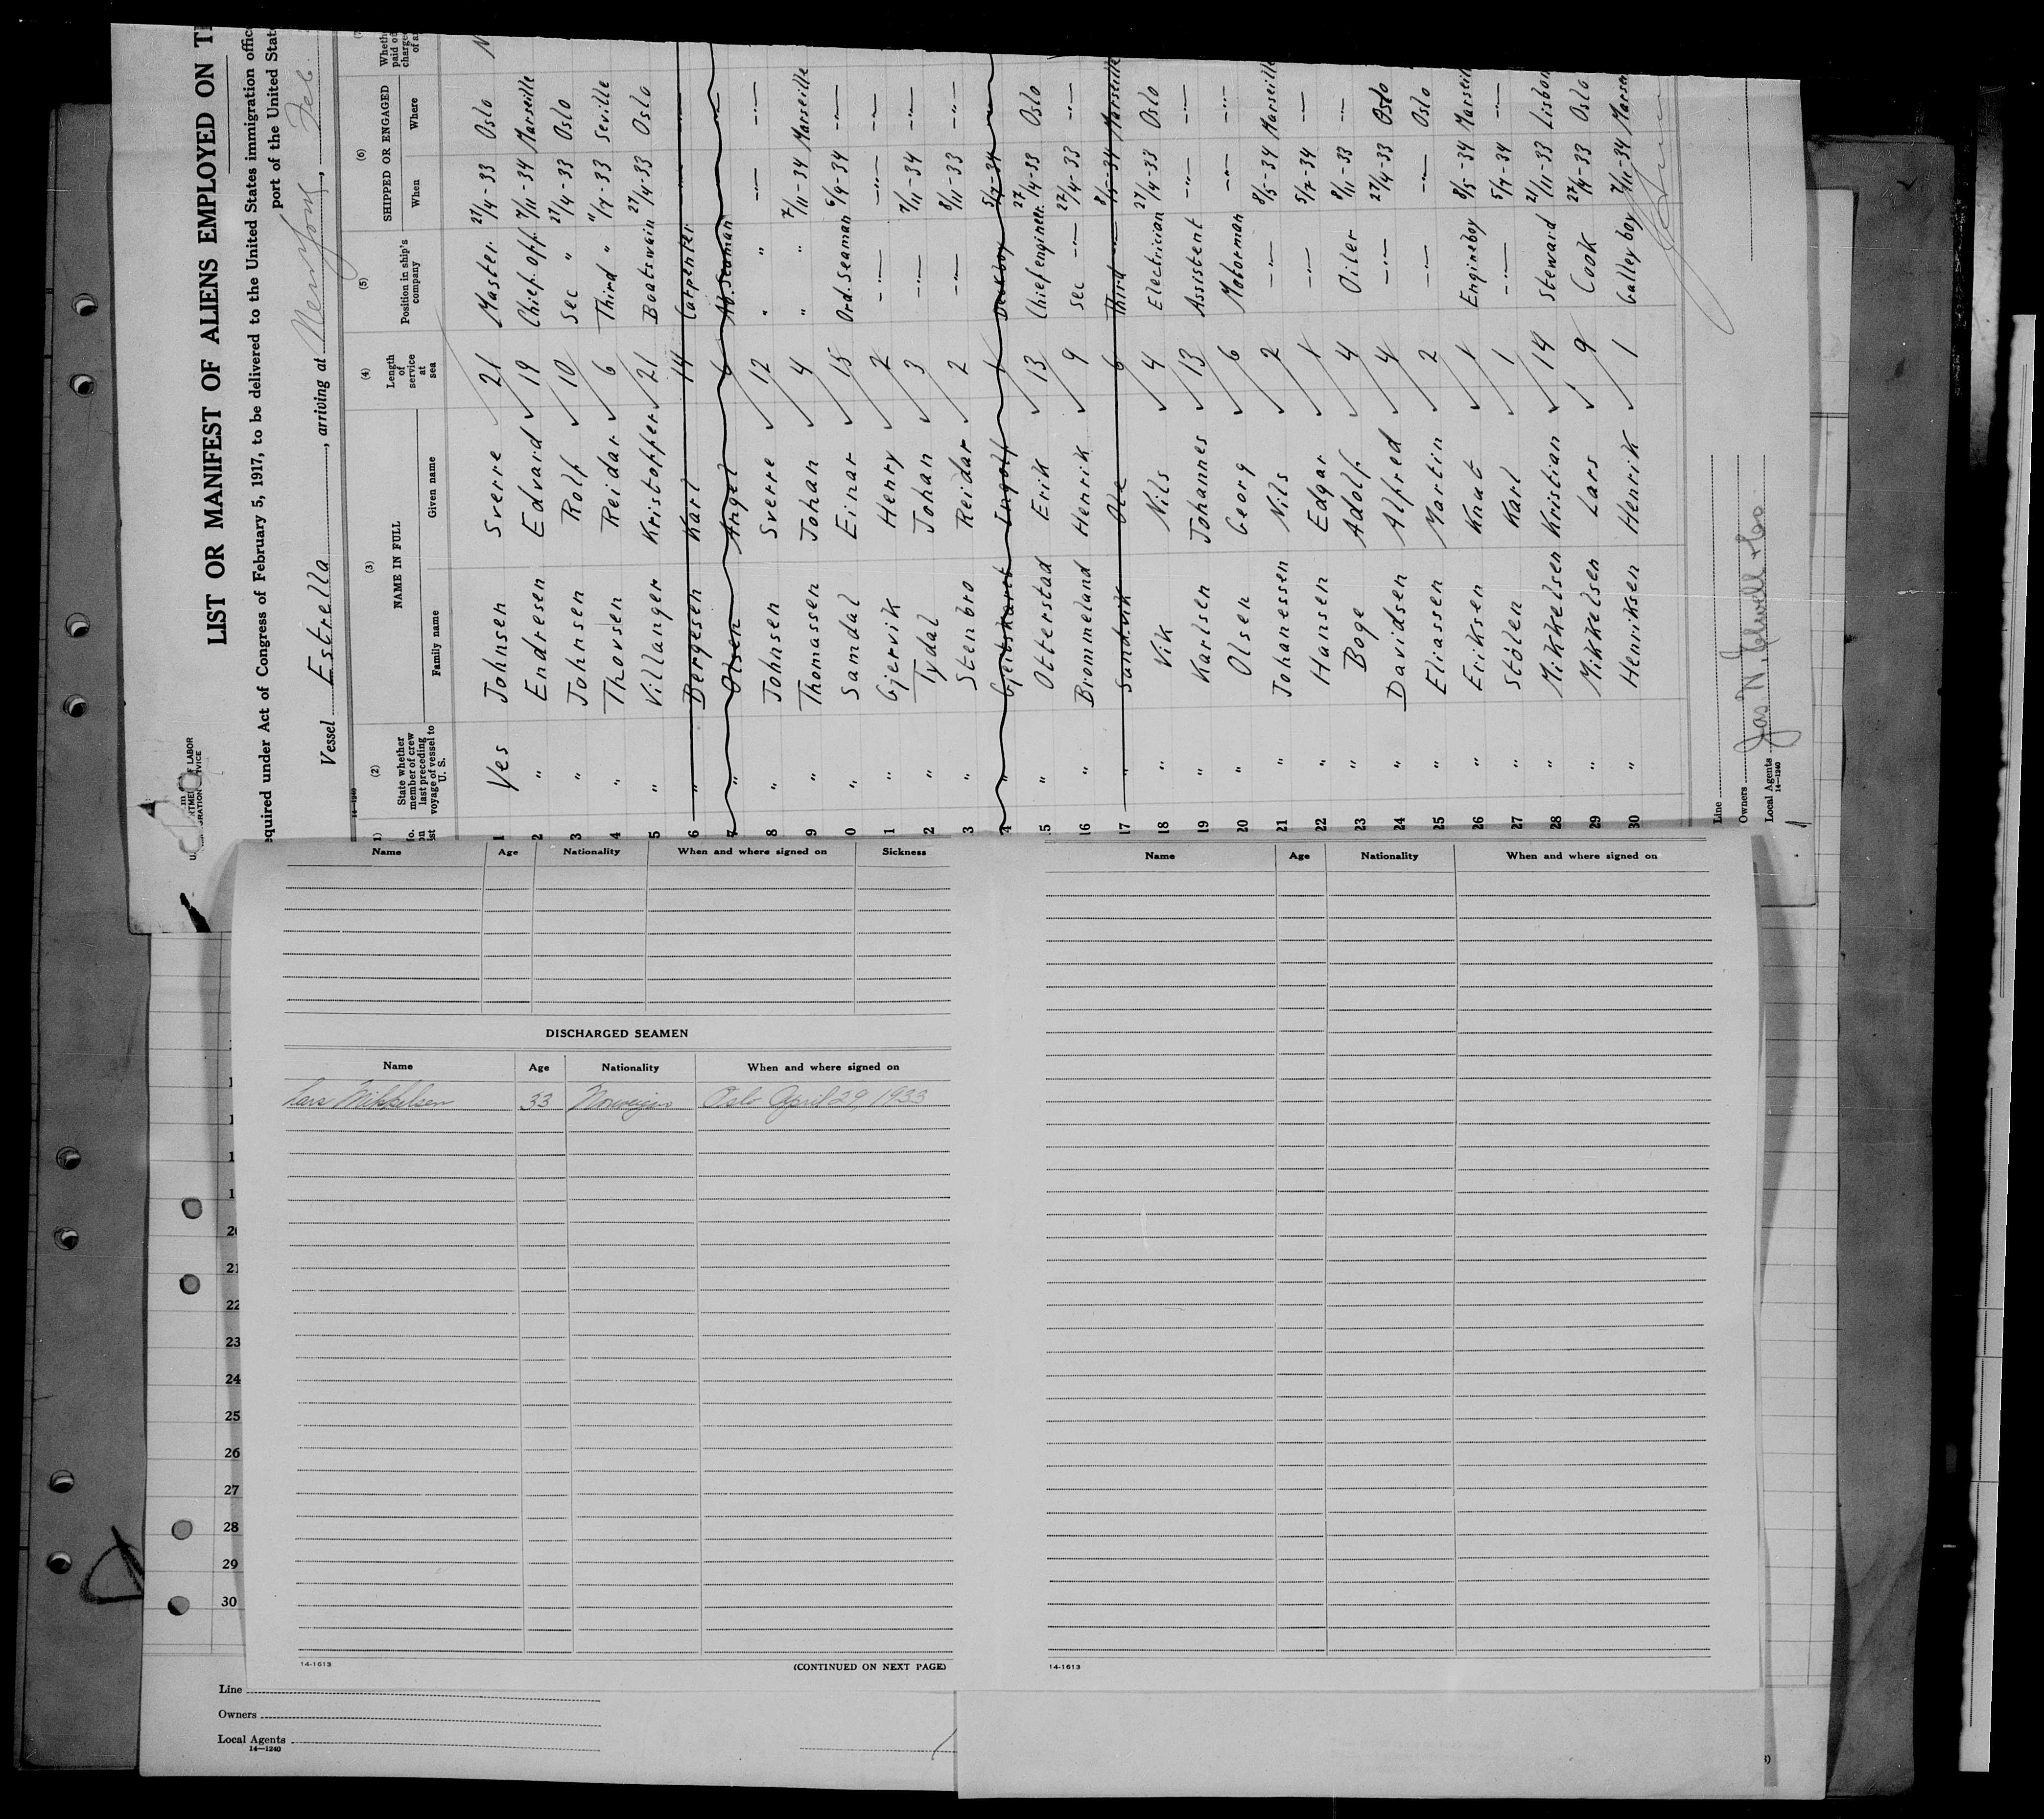 LIST OR MANIFEST OF ALIENS EMPLOYED ON
equired under Act of Congress of February 5, 1917, to be delivered to the United States immigration
port of the United
Vessel Estrella, arriving at New York, Feb.
14-1240
(2) (3) (4) (5) (6)
State whether member of crew last preceding voyage of vessel to U. S. NAME IN FULL Length of service at sea Position in ship's company SHIPPED OR ENGAGED
Family name Given name When Where
1 Yes Johnsen Sverre 21 Master 27/4-33 Oslo
2 " Endresen Edvard 19 Chief off. 7/11-34 Marseille
3 " Johnsen Rolf 10 Sec " 27/4-33 Oslo
4 " Thovsen Reidar 6 Third " 11/7-33 Seville
5 " Villanger Kristoffer 21 Boatswain 27/4-33 Oslo
6 " Bergesen Karl 14 Carpenter -"- -"-
7 " Olsen Angel 6 Ab. Seaman -"-
8 " Johnsen Sverre 12 " " -"- -"-
9 " Thomassen Johan 4 " " 7/11-34 Marseille
0 " Samdal Einar 15 Ord. Seaman 6/9-34 -"-
1 " Gjervik Henry 2 -"- -"- -"-
2 " Tydal Johan 3 -"- 7/11-34 -"-
3 " Stenbro Reidar 2 -"- 8/11-33 -"-
4 " Ingolf 1 Deckboy 5/7-34
15 " Otterstad Erik 13 Chief engineer 27/4-33 Oslo
16 " Brommeland Henrik 9 Sec -"- 27/4-33 -"-
17 " Sandvik Ole 6 Third -"- 8/5-34 Marseille
18 " Vik Nils 4 Electrician 27/4-33 Oslo
19 " Karlsen Johannes 13 Assistent -"- -"-
20 " Olsen Georg 6 Motorman -"- -"-
21 " Johanessen Nils 2 -"- 8/5-34 Marseille
22 " Hansen Edgar 1 -"- 5/7-34 -"-
23 " Boge Adolf 4 Oiler 8/11-33 -"-
24 " Davidsen Alfred 4 -"- 27/4-33 Oslo
25 " Eliassen Martin 2 -"- -"- Oslo
26 " Eriksen Knut 1 Engineboy 8/5-34 Marseil
27 " Stölen Karl 1 -"- 5/7-34 -"-
28 " Mikkelsen Kristian 14 Steward 21/11-33 Lisbon
29 " Mikkelsen Lars 9 Cook 27/4-33 Oslo
30 " Henriksen Henrik 1 Galley boy 7/11-34 Marsei
Line
Owners
Local Agents
14-1240
Name Age Nationality When and where signed on Sickness
DISCHARGED SEAMEN
Name Age Nationality When and where signed on
Lars Mikkelsen 33 Norwegian Oslo April 29, 1933
14-1613
(CONTINUED ON NEXT PAGE)
Name Age Nationality When and where signed on
14-1613
20
21
22
23
24
25
26
27
28
29
30
Line
Owners
Local Agents
14-1240